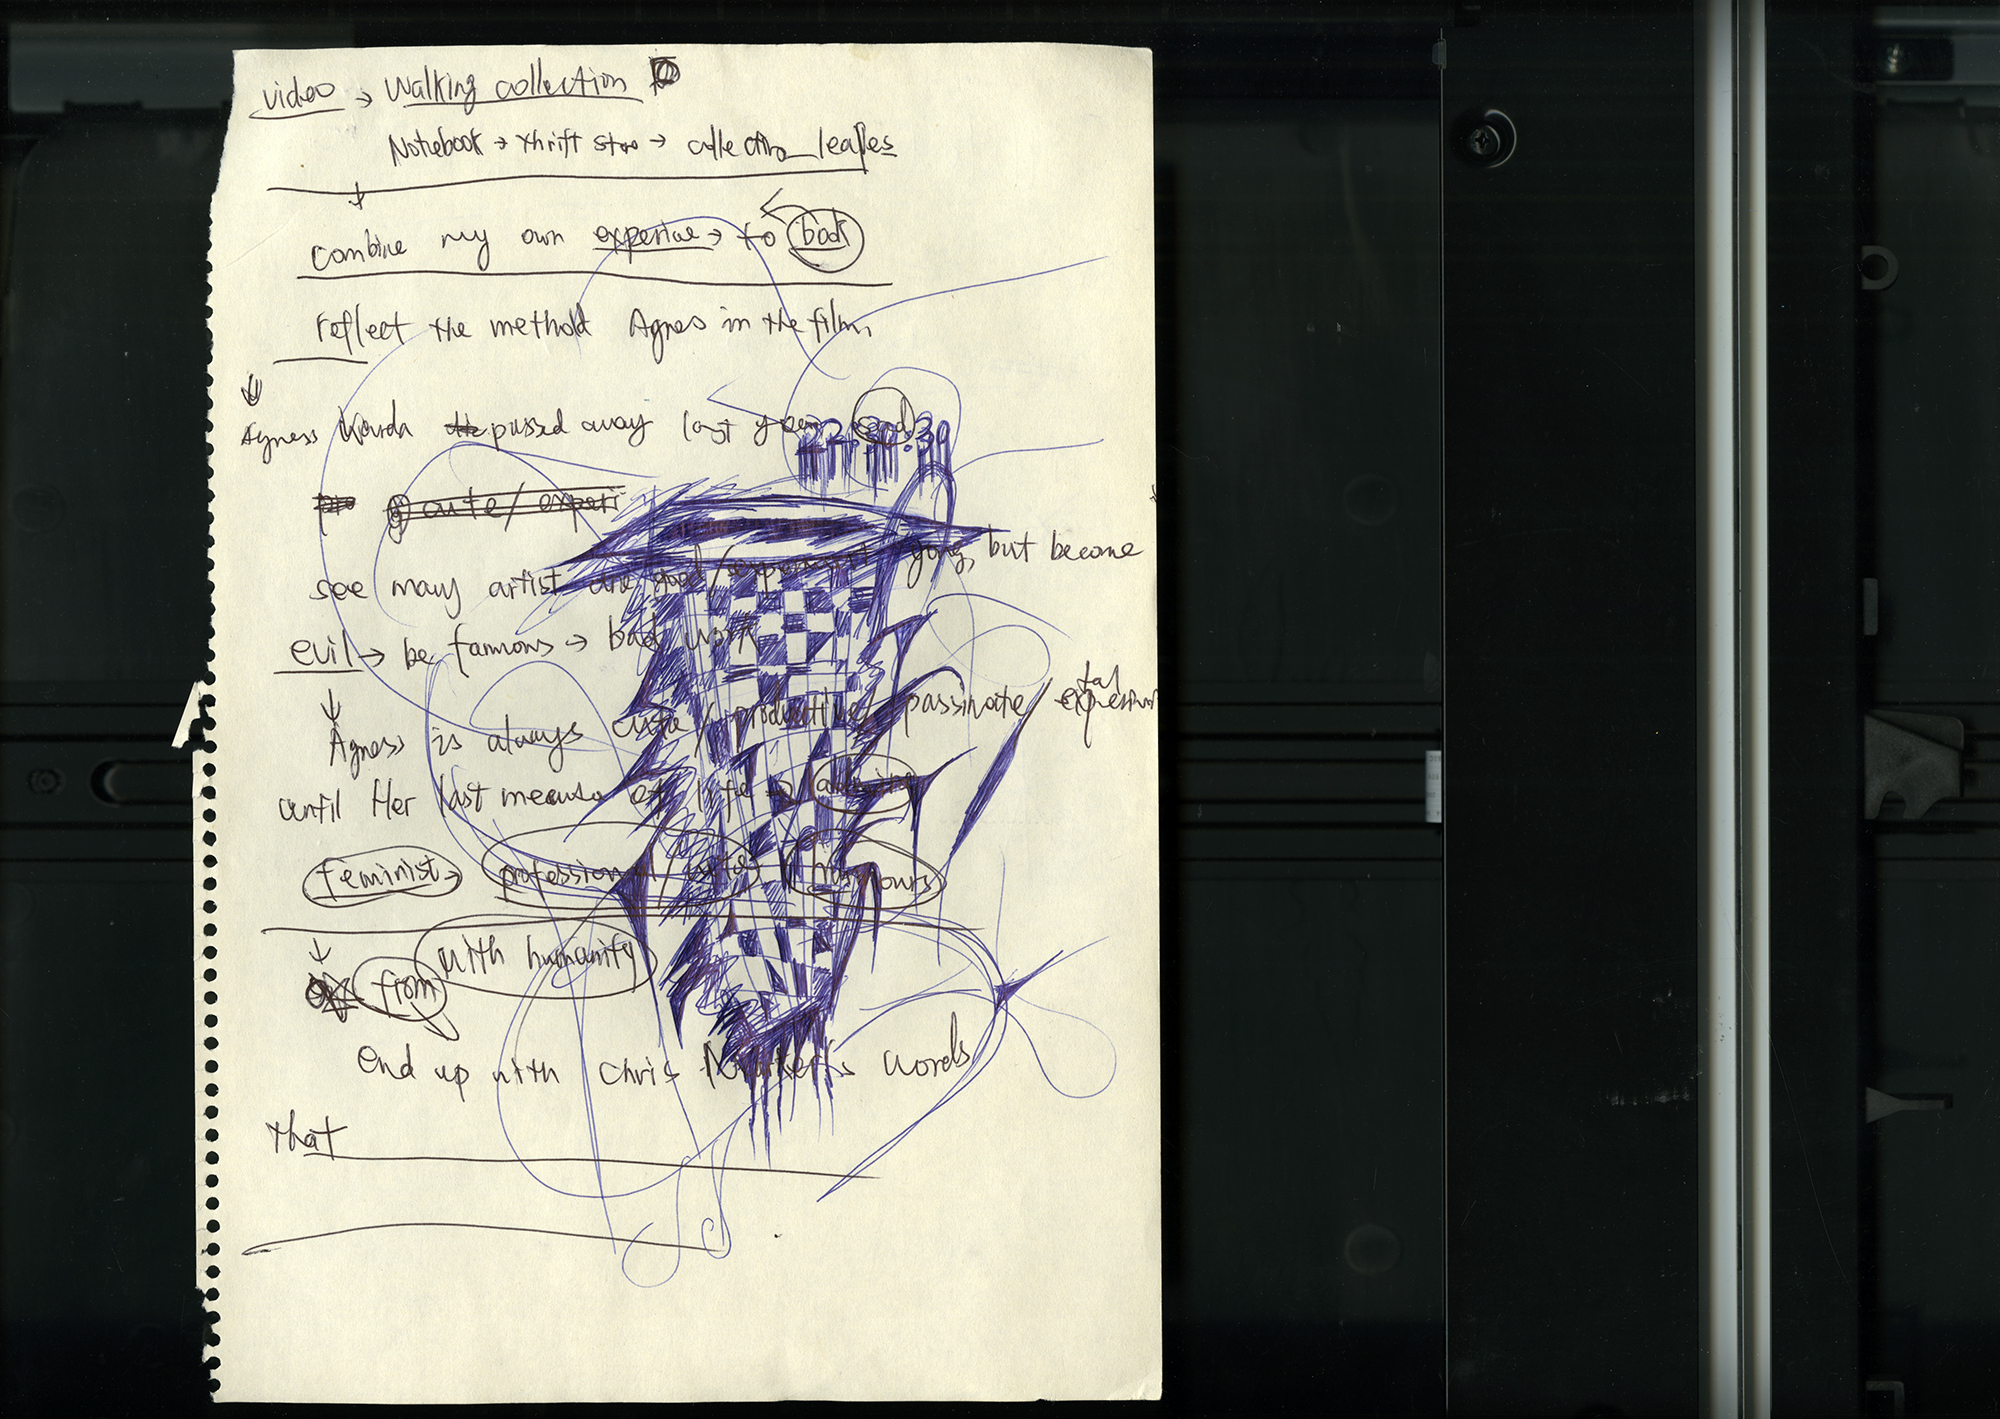 video → walking collection
Notebook → thrift stoo → collectio_leafes
combine my own experine → to book
reflect the method Agnes in the film
Agness Varda passed away last year
cute / experi
see many artist are good / experiment young, but become
evil → be famous → bad work
Agness is always cute / productive / passinate
until Her last of life →
feminist → profession / humours
from with humanity
end up with Chris Marker's words
that